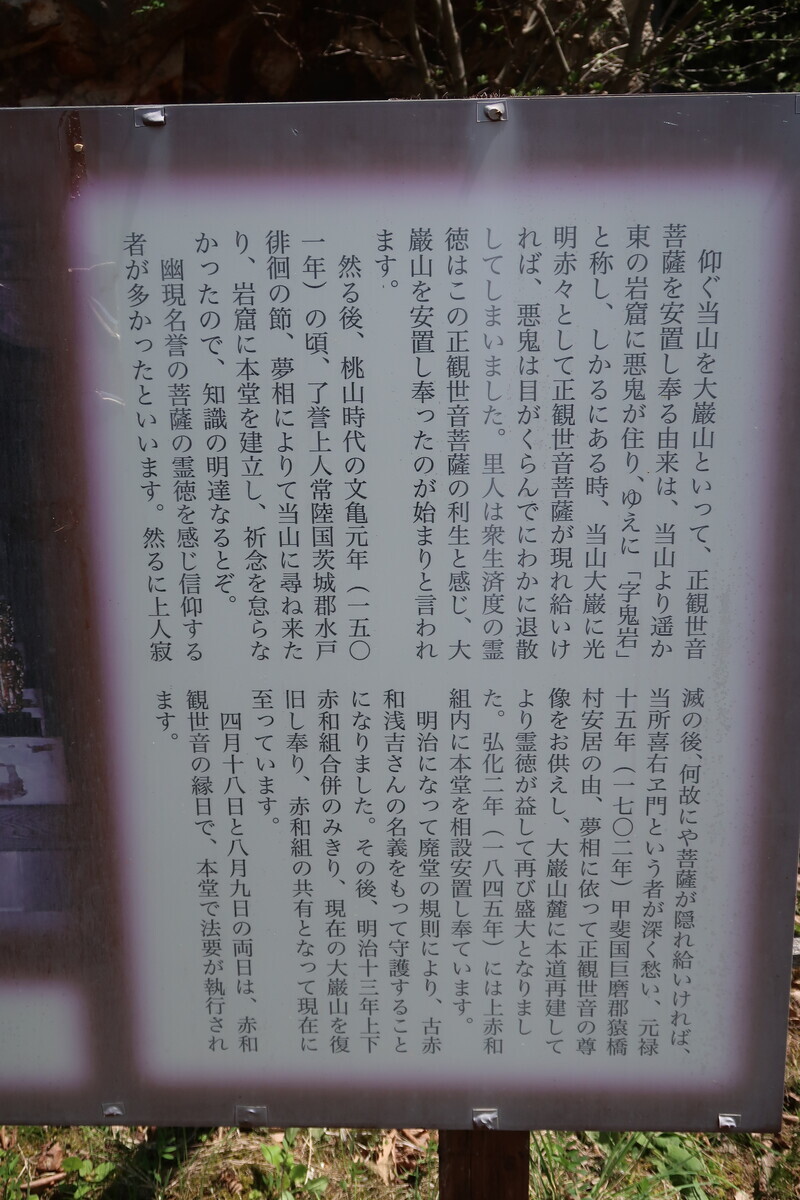 仰ぐ当山を大巌山といって、正観世音
菩薩を安置し奉る由来は、当山より遥か
東の岩窟に悪鬼が住り、ゆえに「字鬼岩」
と称し、しかるにある時、当山大巌に光
明赤々として正観世音菩薩が現れ給いけ
れば、悪鬼は目がくらんでにわかに退散
してしまいました。里人は衆生済度の霊
徳はこの正観世音菩薩の利生と感じ、大
巌山を安置し奉ったのが始まりと言われ
ます。
然る後、桃山時代の文亀元年（一五〇
一年）の頃、了誉上人常陸国茨城郡水戸
徘徊の節、夢相によりて当山に尋ね来た
り、岩窟に本堂を建立し、祈念を怠らな
かったので、知識の明達なるとぞ。
幽現名誉の菩薩の霊徳を感じ信仰する
者が多かったといいます。然るに上人寂
滅の後、何故にや菩薩が隠れ給いければ、
当所喜右ヱ門という者が深く愁い、元禄
十五年（一七〇二年）甲斐国巨磨郡猿橋
村安居の由、夢相に依って正観世音の尊
像をお供えし、大巌山麓に本道再建して
より霊徳が益して再び盛大となりまし
た。弘化二年（一八四五年）には上赤和
組内に本堂を相設安置し奉ています。
明治になって廃堂の規則により、古赤
和浅吉さんの名義をもって守護すること
になりました。その後、明治十三年上下
赤和組合併のみきり、現在の大巌山を復
旧し奉り、赤和組の共有となって現在に
至っています。
四月十八日と八月九日の両日は、赤和
観世音の縁日で、本堂で法要が執行され
ます。